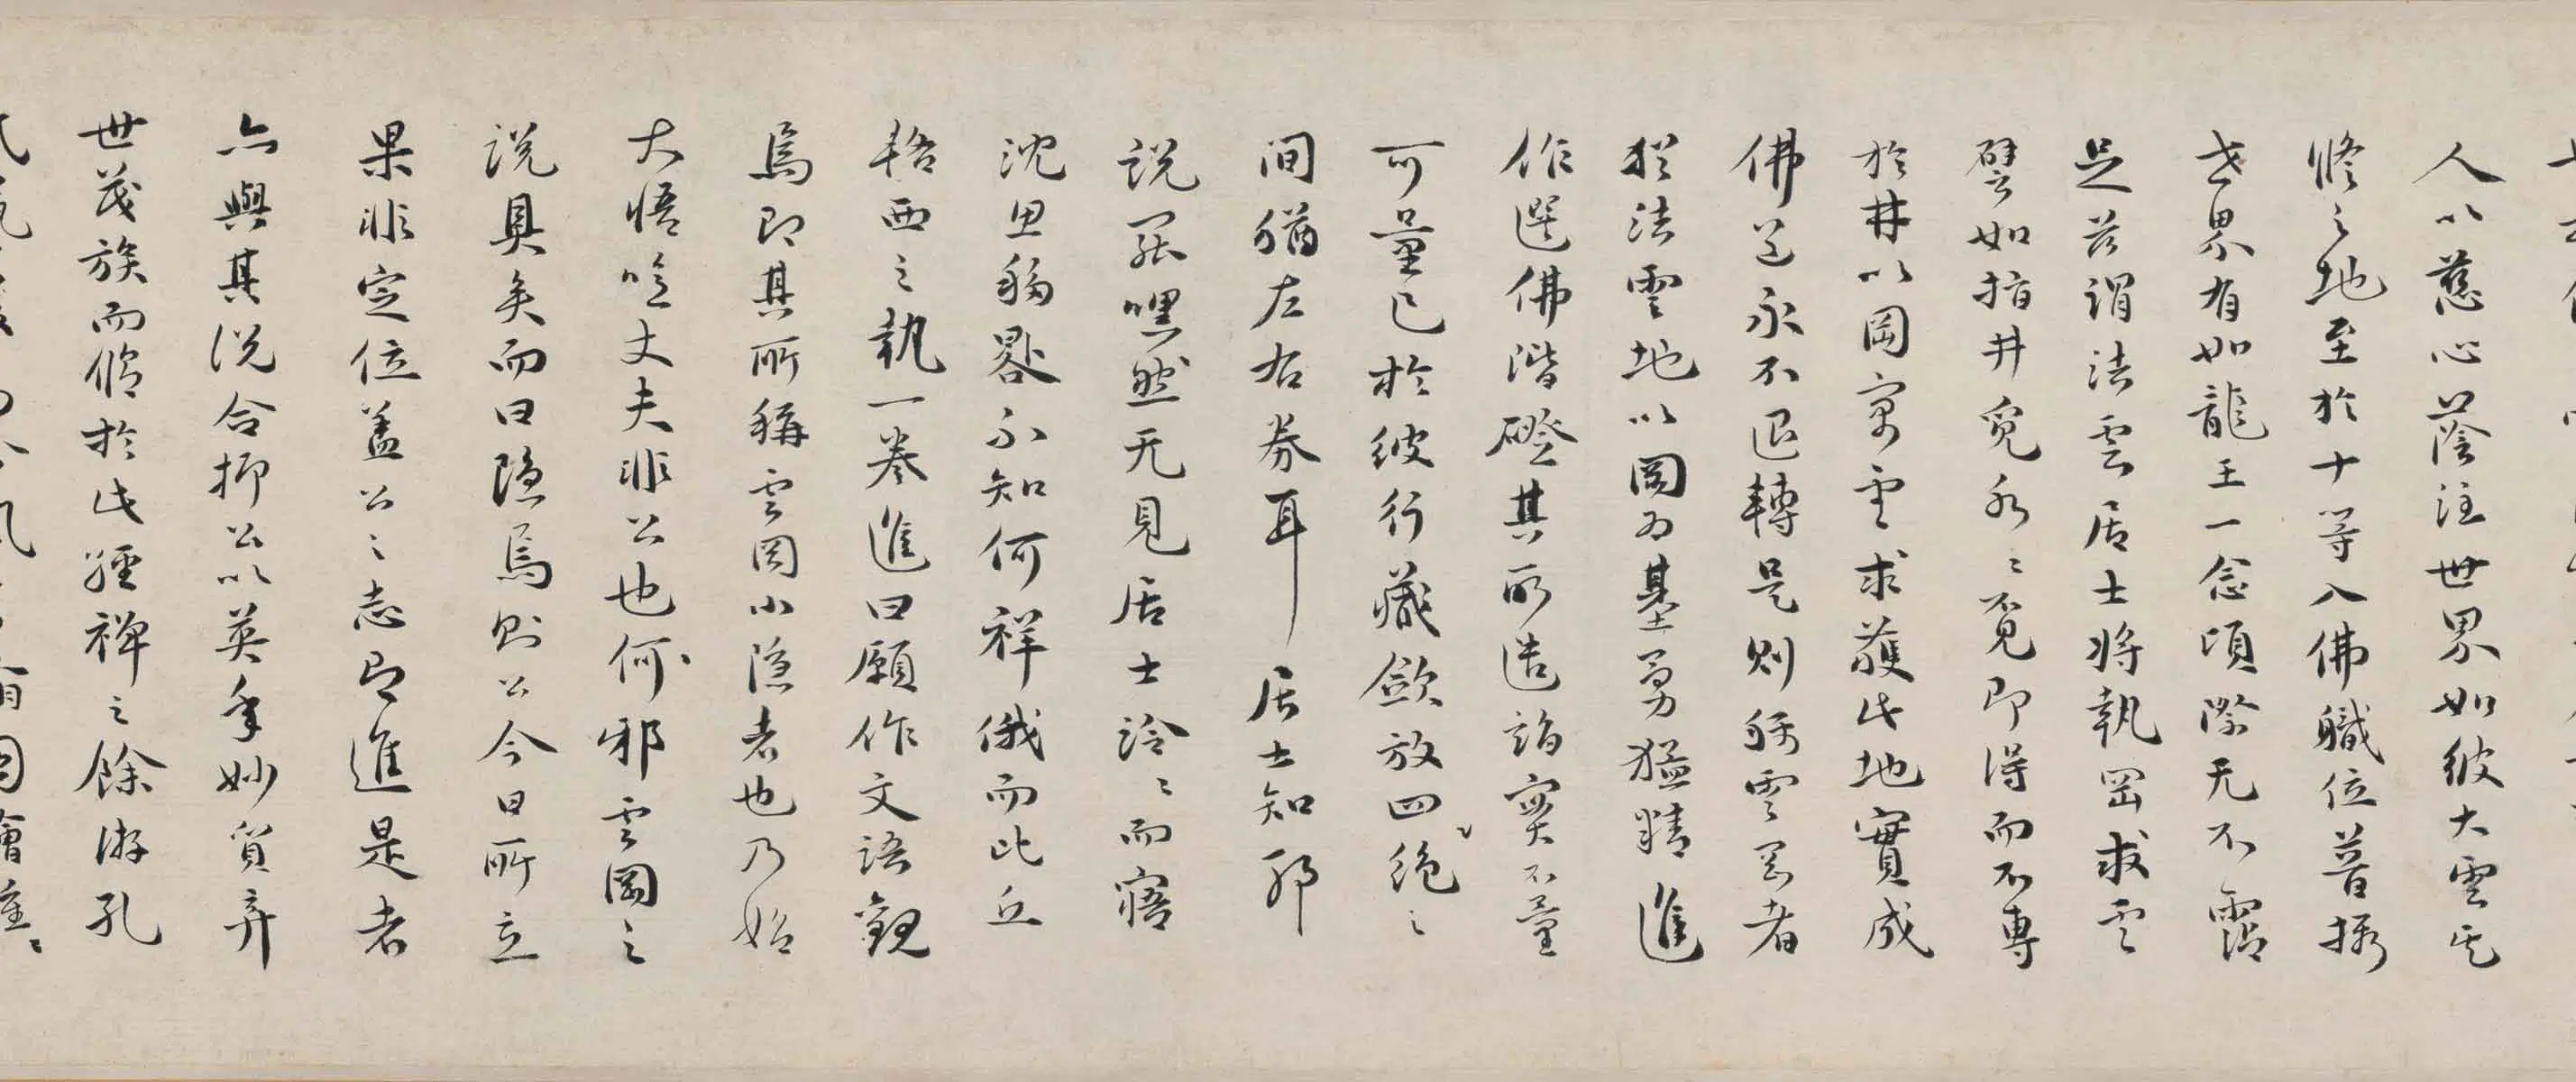 人以慈心蔭注世界如彼大雲其
修之地至於十等入佛職位普招
世界有如龍王一念頃際无不霑
足茲謂法雲居士將執罔求雲
譬如指井覓水水覓即得而不專
於井以岡寓雲求獲此地實成
佛道永不退轉是則稱雲岡者
於法雲地以岡為基勇猛精進
作選佛階磴其所造詣實不量
可量已於彼行藏斂放四絕之
間猶左右券耳居士知耶
說罷嘿然无見居士泠泠而寤
沈思移晷不知何祥俄而比丘
西之執一卷進曰願作文語觀
焉即其所稱雲岡小隱者也乃始
大悟嗟丈夫非公也何邪雲岡之
說具矣而曰隱焉則公今日所立
果非定位蓋公之志即進是者
亦與其說合抑公以英年妙質弃
世茂族而脩於此經禪之餘游孔